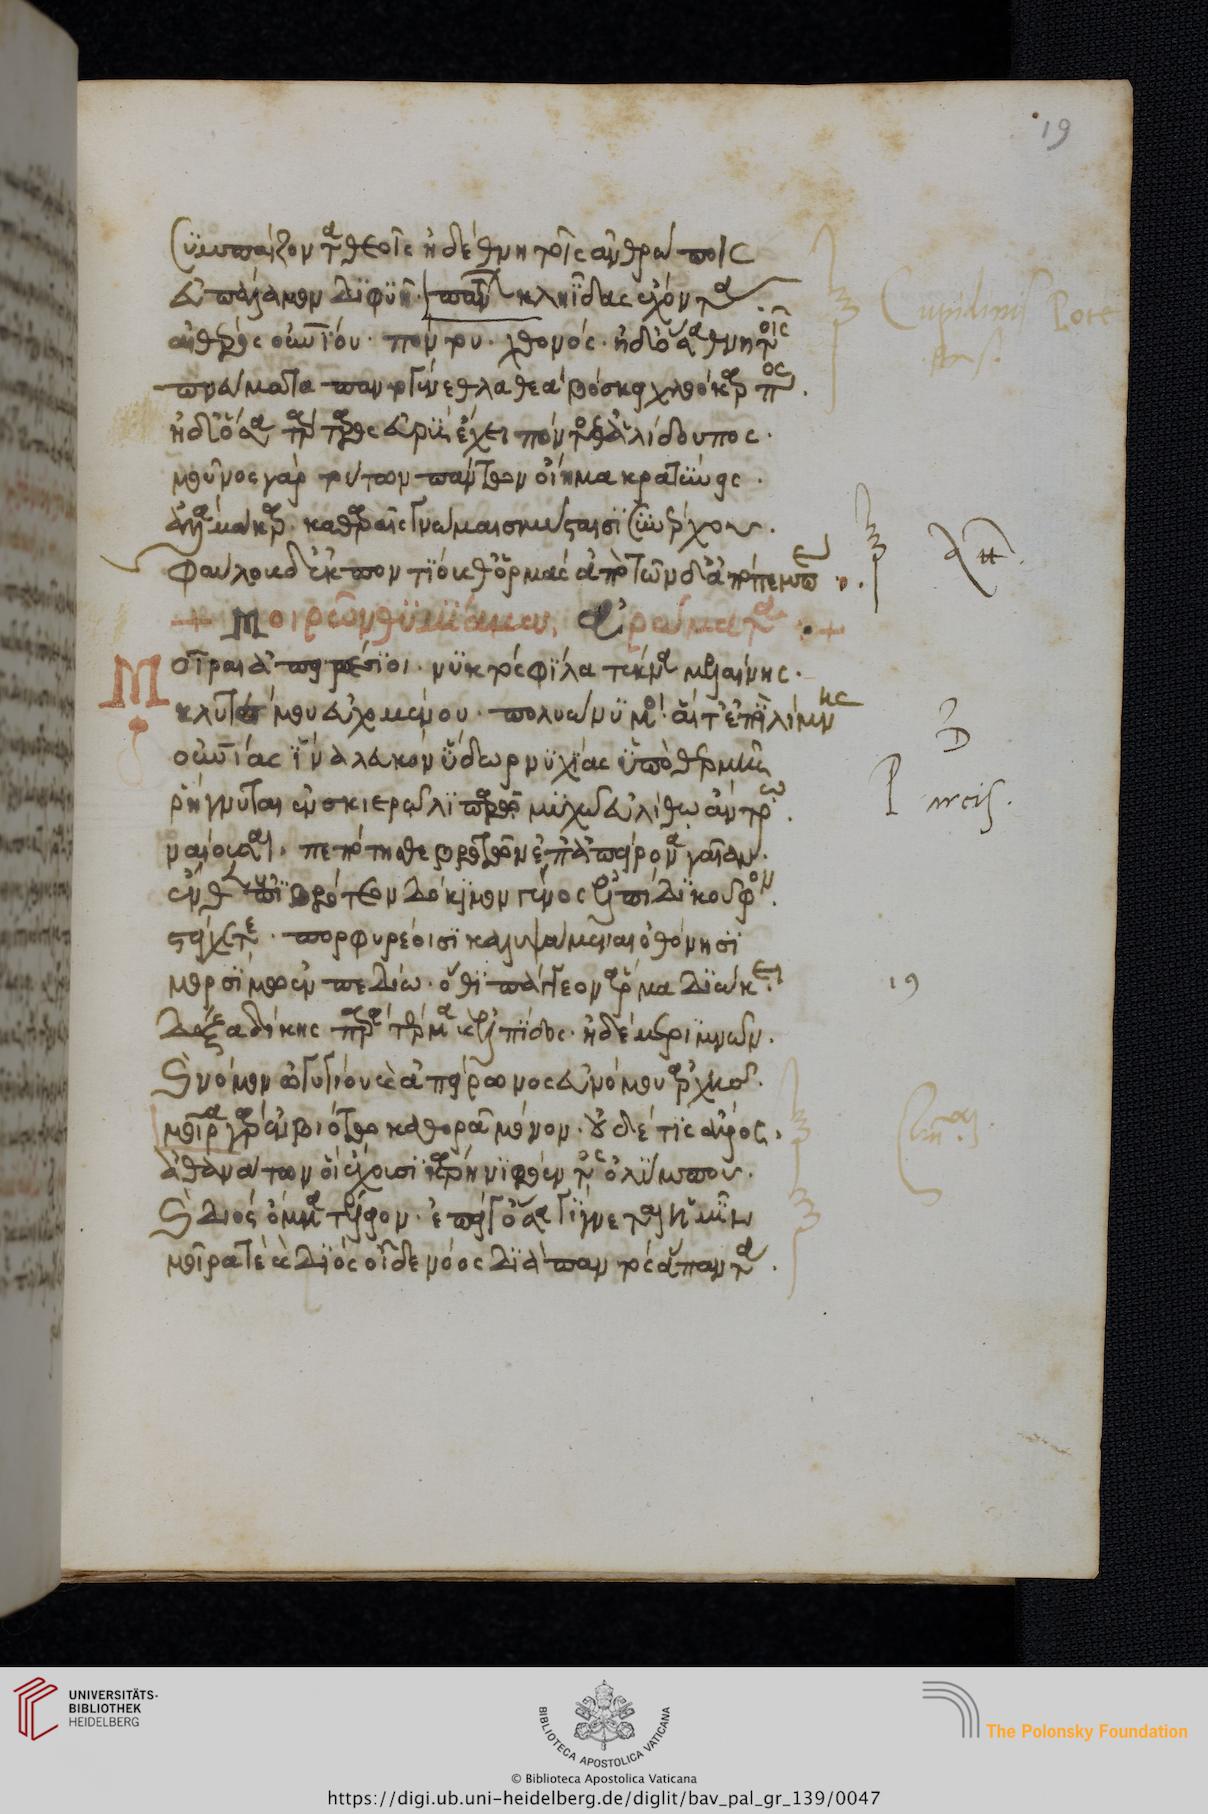 19
συμπαίζοντα θεοῖς ἠδὲ θνητοῖς ἀνθρώποις
εὐπάλαμον διφυῆ πάντων κληῖδας ἔχοντα
αἰθέρος οὐρανίου πόντου χθονός ἠδ' ὅσα θνητοῖς
πνεύματα παντογένεθλα θεὰ βόσκει χλοόκαρπος
ἠδ' ὅσα τάρταρος εὐρὺς ἔχει πόντος θ' ἁλίδουπος
μοῦνος γὰρ τούτων πάντων οἴηκα κρατύνεις
ἀλλὰ μάκαρ καθαραῖς γνώμαις μύσταισι συνέρχου
φαύλους δ' ἐκτοπίους θ' ὁρμὰς ἀπὸ τῶνδ' ἀπόπεμπε
+ Μοιρῶν θυμίαμα, ἀρώματα +
Μοῖραι ἀπειρέσιοι νυκτὸς φίλα τέκνα μελαίνης
κλῦτέ μου εὐχομένου πολυώνυμοι αἵτ' ἐπὶ λίμνης
οὐρανίας ἵνα λευκὸν ὕδωρ νυχίας ὑπὸ θέρμης
ῥήγνυται ἐν σκιερῷ λιπαρῷ μυχῷ εὐλίθῳ ἄντρῳ
ναίουσαι πεπότησθε βροτῶν ἐπ' ἀπείρονα γαῖαν
ἔνθεν ἐπὶ βρότεον δόκιμον γένος ἐλπίδι κοῦφον
στείχετε πορφυρέοισι καλυψάμεναι ὀθόνῃσι
μορσίμῳ ἐν πεδίῳ ὅθι πάγγεον ἅρμα διώκει
δόξα δίκης παρὰ τέρμα καὶ ἐλπίδος ἠδὲ μεριμνῶν
καὶ νόμου ὠγυγίου καὶ ἀπείρονος εὐνόμου ἀρχῆς
μοῖρα γὰρ ἐν βιότῳ καθορᾷ μόνον οὐδέ τις ἄλλος
ἀθανάτων οἳ ἔχουσι κάρη νιφόεντος ὀλύμπου
καὶ Διὸς ὄμμα τέλειον ἐπεί γ' ὅσα γίγνεται ἡμῖν
μοῖρά τε καὶ Διὸς οἶδε νόος διὰ παντὸς ἅπαντα
Cupidinis Pote
stas.
Parcis.
19
UNIVERSITÄTS-
BIBLIOTHEK
HEIDELBERG
BIBLIOTECA APOSTOLICA VATICANA
The Polonsky Foundation
© Biblioteca Apostolica Vaticana
https://digi.ub.uni-heidelberg.de/diglit/bav_pal_gr_139/0047